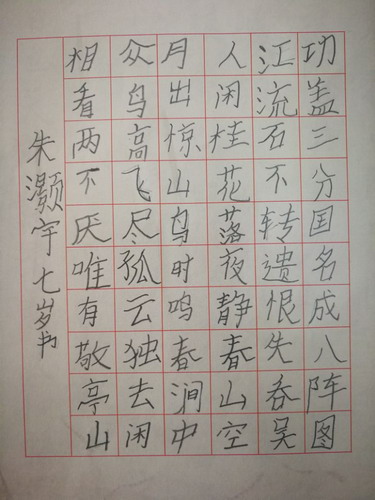 功盖三分国名成八阵图
江流石不转遗恨失吞吴
人闲桂花落夜静春山空
月出惊山鸟时鸣春涧中
众鸟高飞尽孤云独去闲
相看两不厌唯有敬亭山
朱灏宇七岁书